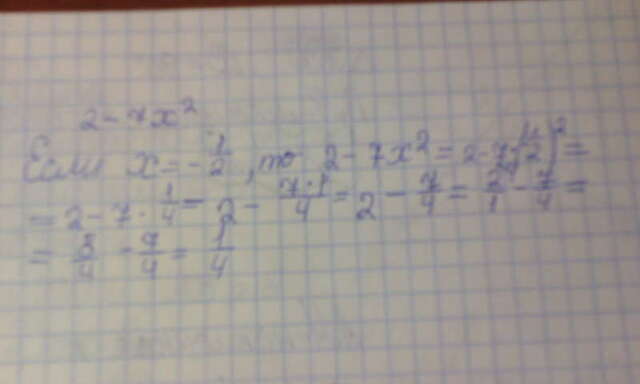 2 - 7x²
Если x = - 1/2, то 2 - 7x² = 2 - 7 · (1/2)² =
= 2 - 7 · 1/4 = 2 - 7·1/4 = 2 - 7/4 = 2/1 - 7/4 =
= 8/4 - 7/4 = 1/4